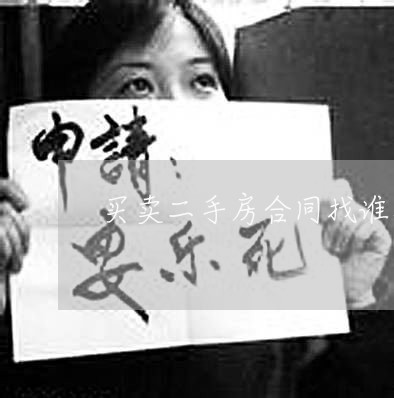 申請：
买卖二手房合同找谁
安乐死